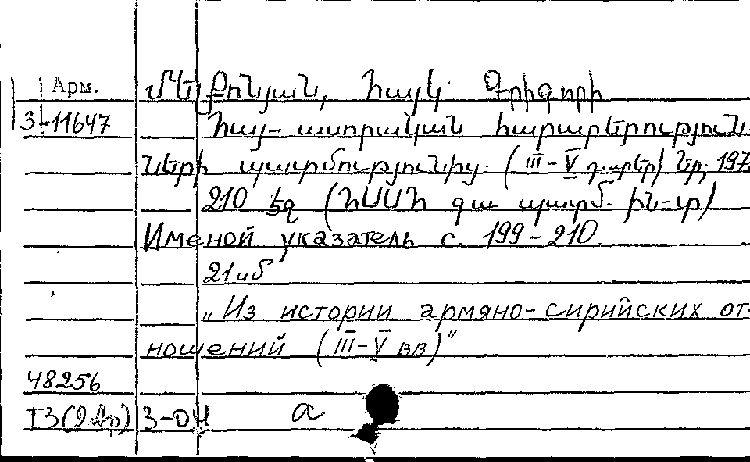 Арм. Մելքոնյան, Հայկ Գրիգորի
3-11647 Հայ-ասորական հարաբերություն-
ների պատմությունից. (III-V դարեր) Եր; 197
210 էջ (ՀՍՍՀ գա պատմ. ին-տ)
Именой указатель с. 199-210.
21иб
„Из истории армяно-сирийских от-
ношений (III-V вв)"
48256
3-04 а